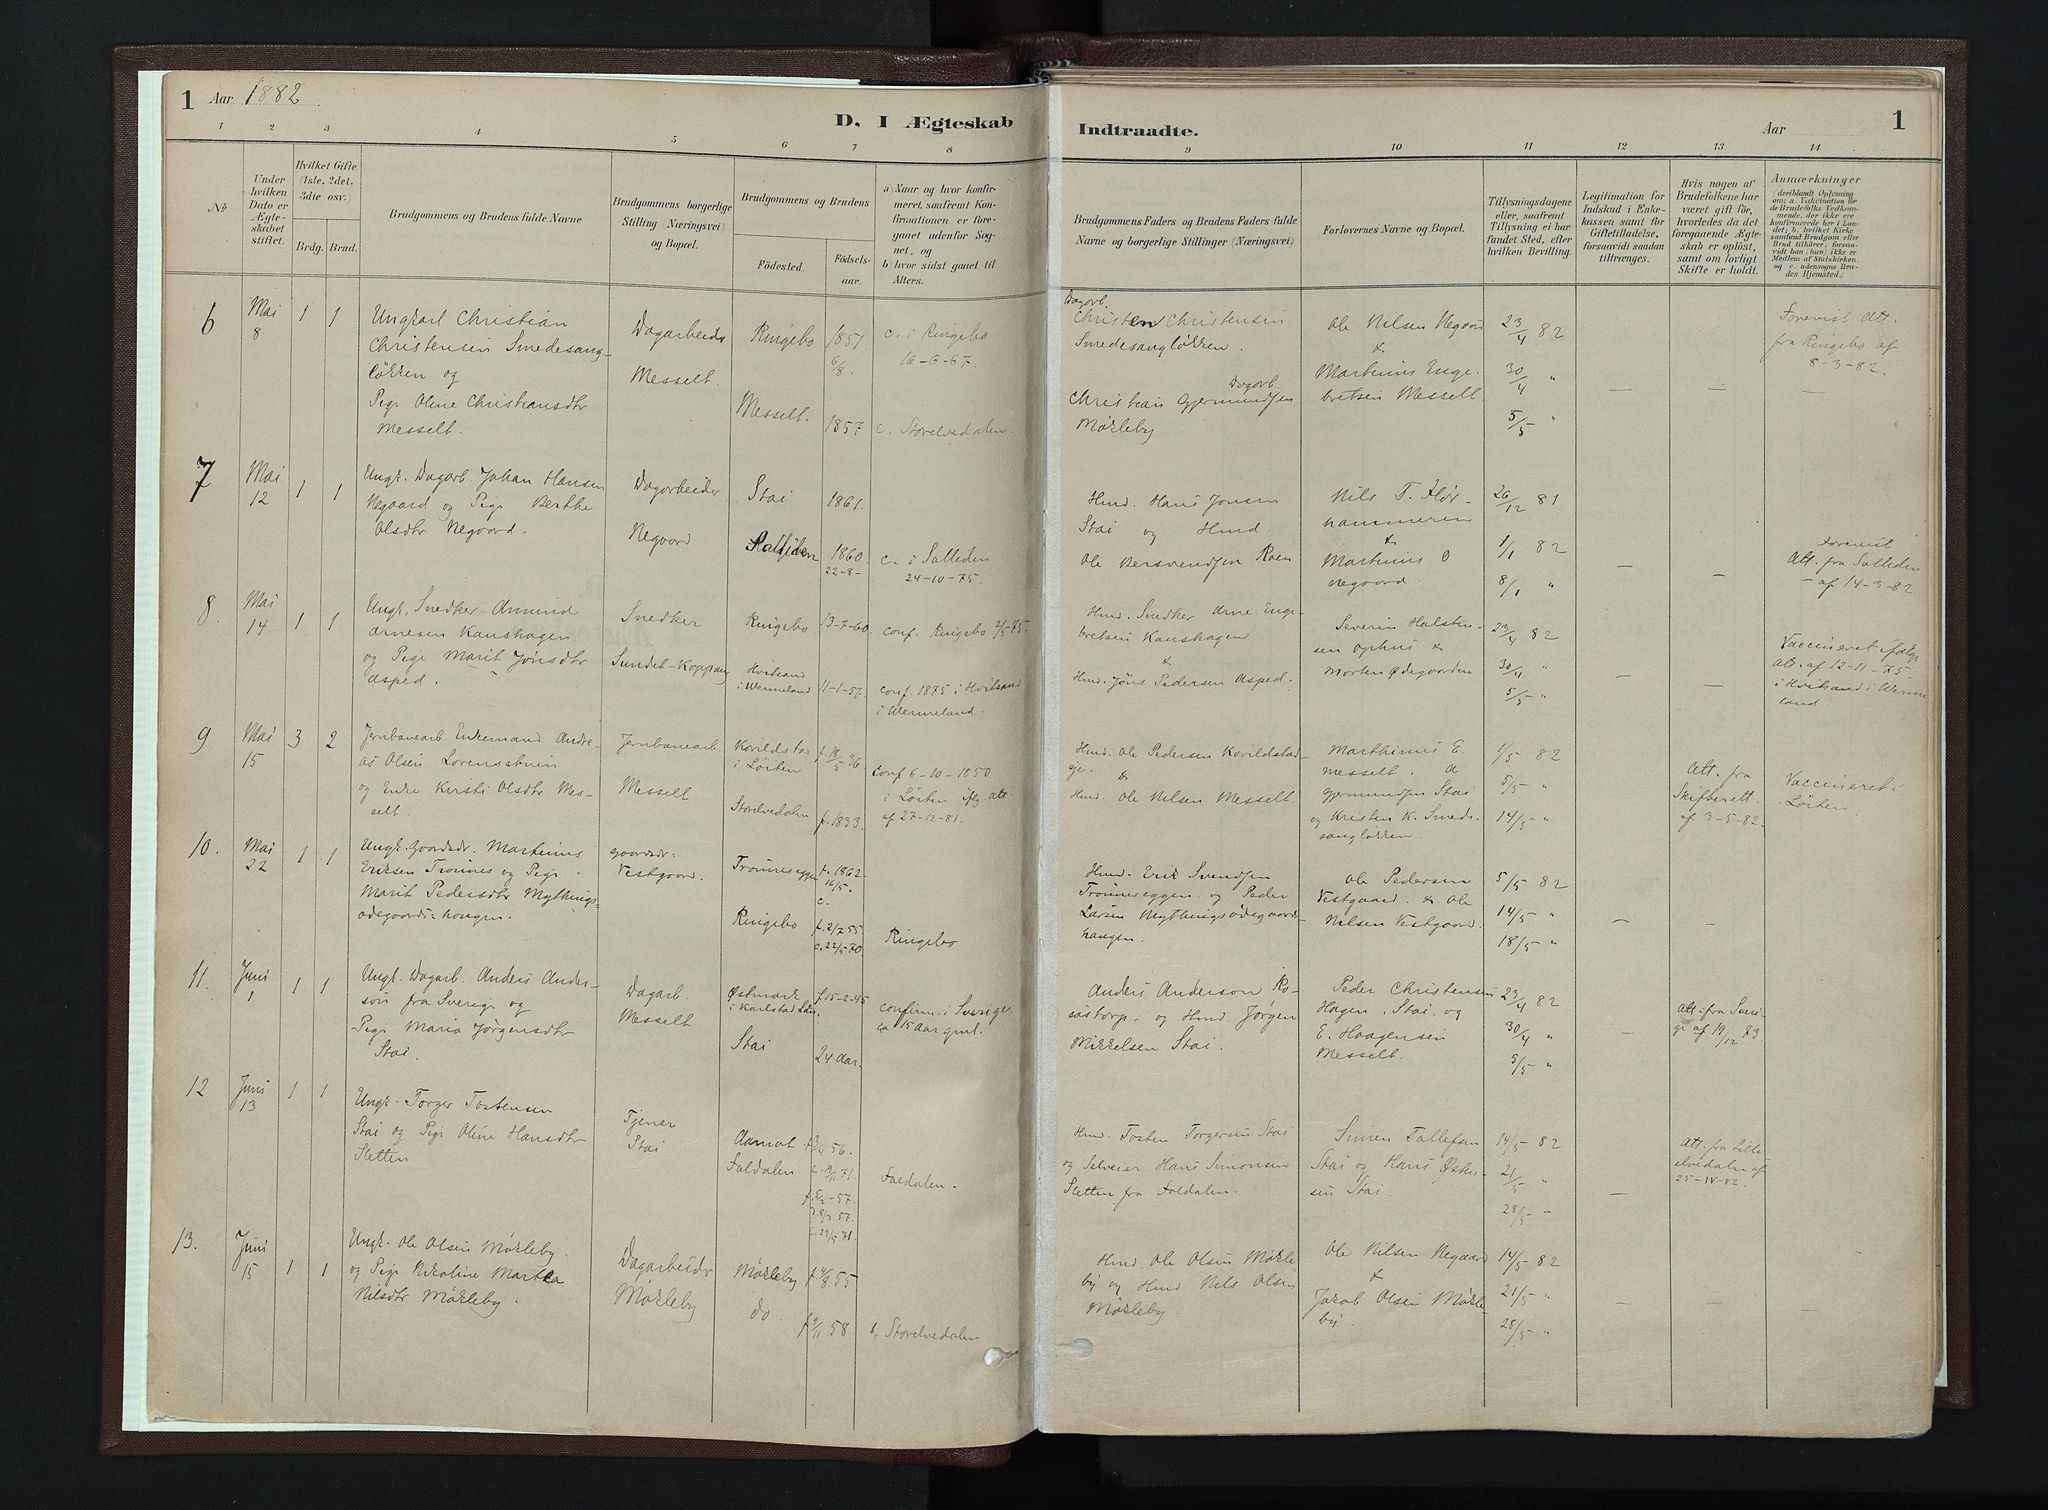 1 Aar 1882
D. I Ægteskab
Indtraadte.
Aar
1
1 2 3 4 5 6 7 8 9 10 11 12 13 14
No
Under hvilken Dato er Ægteskabet stiftet.
Hvilket Gifte (1ste, 2det, 3die osv.)
Brdg. Brud.
Brudgommens og Brudens fulde Navne
Brudgommens borgerlige Stilling (Næringsvei) og Bopæl.
Brudgommens og Brudens
Fødested.
Fødselsaar.
a) Naar og hvor konfirmeret, saafremt Konfirmationen er foregaaet udenfor Sognet, og
b) hvor sidst gaaet til Alters.
Brudgommens Faders og Brudens Faders fulde Navne og borgerlige Stillinger (Næringsvei)
Forlovernes Navne og Bopæl.
Tillysningsdagene eller, saafremt Tillysning ei har fundet Sted, efter hvilken Bevilling.
Legitimation for Indskud i Enkekassen samt for Giftetilladelse, forsaavidt saadan tiltrænges.
Hvis nogen af Brudefolkene har været gift før, hvorledes da det foregaaende Ægteskab er opløst, samt om lovligt Skifte er holdt.
Anmærkninger
(deriblandt Oplysning om: a. Vakcination for de Brudefolks Vedkommende, der ikke ere konfirmerede her i Landet; b. hvilket Kirkesamfund Brudgom eller Brud tilhører, forsaavidt han (hun) ikke er Medlem af Statskirken, og c. udensogns Brudes Hjemsted.)
6
Mai 8
1 1
Ungkarl Christian
Christensen Smedesang-
løkken og
Pige Oline Christiansdtr
Messelt.
Dagarbeider
Messelt.
Ringebo
Messelt.
1851
6/8.
1857
c. i Ringebo
16-6-67.
c. Storelvedalen.
Dagarb.
Christen Christensen
Smedesangløkken.
Dagarb.
Christian Gjermundsen
Møkleby
Ole Nilsen Negaard
&
Martinius Enge-
bretsen Messelt.
23/4 82
30/4 "
5/5 "
—
—
Forevist Att.
fra Ringebo af
8-3-82.
—
7
Mai 12
1 1
Ungk. Dagarb. Johan Hansen
Negaard og Pige Berthe
Olsdtr Negaard.
Dagarbeider
Negaard
Stai
1861.
1860
22-8-
c. i Solleden
24-10-75.
Hmd. Hans Jonsen
Stai og Hmd.
Ole Bersvendsen Roen
Nils T. Klør-
hammeren
&
Martinius O
Negaard.
26/12 81
1/1 82
8/1 "
—
—
Forevist
Att. fra Solleden
— af 14-3-82.
8.
Mai 14
1 1
Ungk. Snedker Amund
Arnesen Kanshagen
og Pige Marit Jønsdtr
Asped.
Snedker
Sundet-Koppang
Ringebo
Hvitsand
i Wermeland
13-7-60
11-1-57.
conf. Ringebo 2/5-75.
conf. 1875 i Hvitsand
i Wermeland.
Hmd. Snedker Arne Enge-
bretsen Kanshagen
&
Hmd. Jøns Pedersen Asped.
Severin Halsten-
sen Ophus &
Morten Ødegaarden
23/4 82
30/4 "
5/5 "
—
—
Vaccineret ifølge
Att. af 12-11-75.
i Hvitsand i Werme
land.
9
Mai 15
3 2
Jernbanearb. Enkemand Andre-
as Olsen Lorensstuen
og Enke Kirsti Olsdtr Mes-
selt.
Jernbanearb
Messelt
Korildstad
i Løiten
Storelvedalen
f. 18/5 36
f. 1833.
conf 6-10-1850
i Løiten iflg. att.
af 27-12-81.
Hmd. Ole Pedersen Korildstad
eje.
&
Hmd. Ole Nilsen Messelt.
Marthinus E.
Messelt. A
Gjermundsen Stai
og Kristen K. Smeds-
sangløkken.
1/5 82
5/5 "
14/5 "
Att. fra
Skifterett
af 3-5-82.
Vaccineret i
Løiten
10.
Mai 22
1 1
Ungk. Gaardsdr. Martinius
Eriksen Trønnes og Pige
Marit Pedersdtr Mythings-
ødegaards-haugen.
Gaardsdr.
Vestgaard.
Trønneseggen
Ringebo
f. 1862
16/5.
c.
f. 2/7 55
c. 22/5 70
Ringebo
Hmd. Erik Svendsen
Trønneseggen og Peder
Larsen Mythingsødegaards-
haugen.
Ole Pedersen
Vestgaard. & Ole
Nilsen Vestgaard.
5/5 82
14/5 "
18/5 "
—
—
11.
Juni 1
1 1
Ungk. Dagarb. Anders Ander-
son fra Sverige og
Pige Maria Jørgensdtr
Stai.
Dagarb.
Messelt
Østmark
i Karlstad Len.
Stai
f. 15-2-45
24 Aar.
confirm. i Sverige
ca 15 Aar gml.
Anders Anderson Ro-
sastorp. og Hmd. Jørgen
Mikkelsen Stai.
Peder Christensen
Hagen. Stai. og
E. Haagensen
Messelt.
23/4 82
30/4 "
5/5 "
—
Att. fra Sveri-
ge af 19/12 73.
12
Juni 13
1 1
Ungk. Torger Tostensen
Stai og Pige Oline Hansdtr
Sletten
Tjener
Stai
Aamot
Foldalen
f. 3/4 56.
c. 19/11 71.
f. 5/2-57.
c. 29/5 71.
Foldalen.
Hmd. Tosten Torgersen Stai
og Selveier Hans Simonsen
Sletten fra Foldalen.
Simen Tollefsen
Stai og Hans Østen-
sen Stai
14/5 82
21/5 "
28/5 "
—
Att. fra Lille
elvedalen af
13.
Juni 15
1 1
Ungk. Ole Olsen Møkleby.
og Pige Nicoline Martea
Nilsdtr Møkleby.
Dagarbeider
Møkleby
Møkleby
do.
f 4/8 55
f 9/11 58.
c. Storelvedalen
Hmd. Ole Olsen Møkle
by og Hmd. Nils Olsen
Møkleby.
Ole Nilsen Negaard
&
Jakob Olsen Møkle-
by.
14/5 82
21/5 "
28/5 "
—
—
—